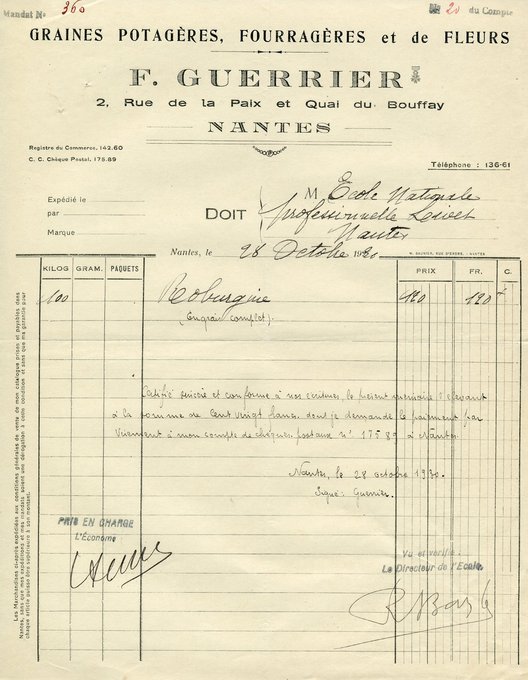 Mandat No 360
No 20 du Compte
GRAINES POTAGÈRES, FOURRAGÈRES et de FLEURS
F. GUERRIER
2, Rue de la Paix et Quai du Bouffay
NANTES
Registre du Commerce, 142.60
C. C. Chèque Postal, 175.89
Téléphone : 136-61
Expédié le
par
Marque
DOIT
M École Nationale
professionnelle Loivet
Nantes
Nantes, le 28 Octobre 1930
KILOG GRAM. PAQUETS PRIX FR. C.
100 Roburgine 120 120
(Engrais complet).
Certifié sincère et conforme à nos écritures le présent mémoire s'élevant
à la somme de Cent vingt francs dont je demande le paiement par
Virement à mon compte de chèques postaux n° 175 89 à Nantes.
Nantes, le 28 octobre 1930.
Signé : Guerrier.
PRIS EN CHARGE
L'Économe
Vu et vérifié :
Le Directeur de l'École,
Les Marchandises ci-après expédiées aux conditions générales de vente de mon catalogue prises et payables dans
Nantes, sans que mes expéditions et mes mandats soient une dérogation à cette condition et sans que ma garantie pour
chaque article puisse être supérieure à son montant.